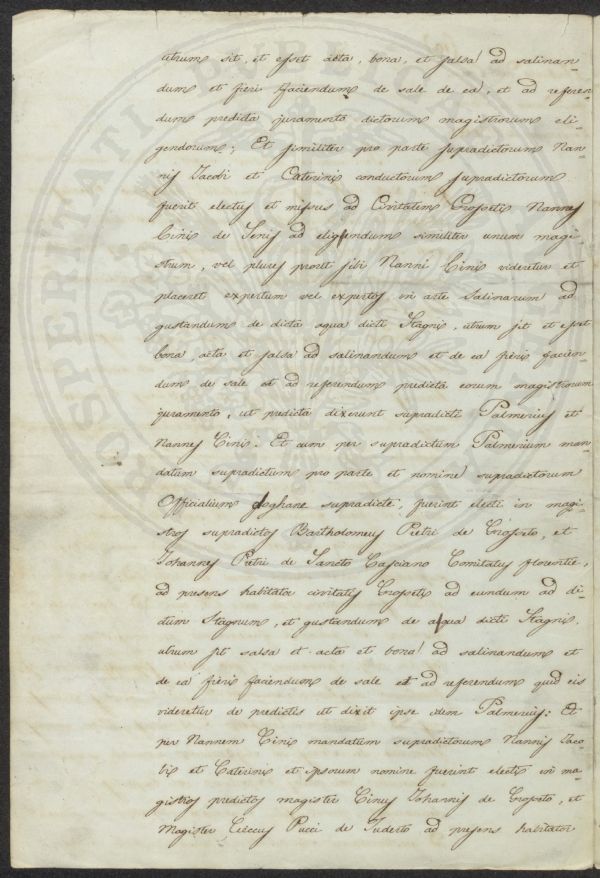 utrum sit, et esset acta, bona, et salsa ad salinan-
dum et fieri faciendum de sale de ea, et ad referen-
dum predicta juramento dictorum magistrorum eli-
gendorum; Et similiter pro parte supradictorum Nan-
nis Jacobi et Caterini conductorum supradictorum
fuerit electus et missus ad Civitatem Grosseti Nannes
Cini de Senis ad eligendum similiter unum magi-
strum, vel plures prout sibi Nanni Cini videretur et
placeret expertum vel expertos in arte Salinarum ad
gustandum de dicta aqua dicti Stagni, utrum sit et esset
bona, acta et salsa ad salinandum et de ea fieri facien-
dum de sale et ad referendum predicta eorum magistrorum
juramento, ut predicta dixerunt supradicti Palmerius et
Nannes Cini: Et cum per supradictum Palmerium man-
datum supradictum pro parte et nomine supradictorum
Officialium Doghane supradicte, fuerint electi in magi-
stros supradictos Bartholomeus Pietri de Grosseto, et
Johannes Pietri de Sancto Casciano Comitatus florentie,
ad presens habitator civitatis Grosseti ad eundum ad di-
ctum Stagnum, et gustandum de aqua dicti Stagni,
utrum sit salsa et acta et bona ad salinandum et
de ea fieri faciendum de sale et ad referendum quid eis
videretur de predictis ut dixit ipse idem Palmerius: Et
per Nannem Cini mandatum supradictorum Nannis Jaco-
bi et Caterini et ipsorum nomine fuerint electi in ma-
gistros predictos magister Cinus Johannis de Grosseto, et
Magister Ceccus Pucci de Tuderto ad presens habitator
PROSPERITATI PUBLICAE